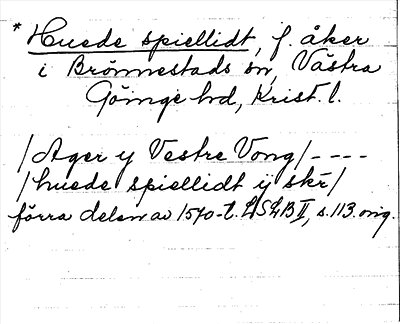 * Huede spiellidt, f. åker
i Brönnestads sn, Västra
Göinge hd, Krist. l.
/Ager y Vestre Vong/ - - - -
/huede spiellidt ÿ skr/
förra delen av 1570-t. LSLB II, s. 113. orig.